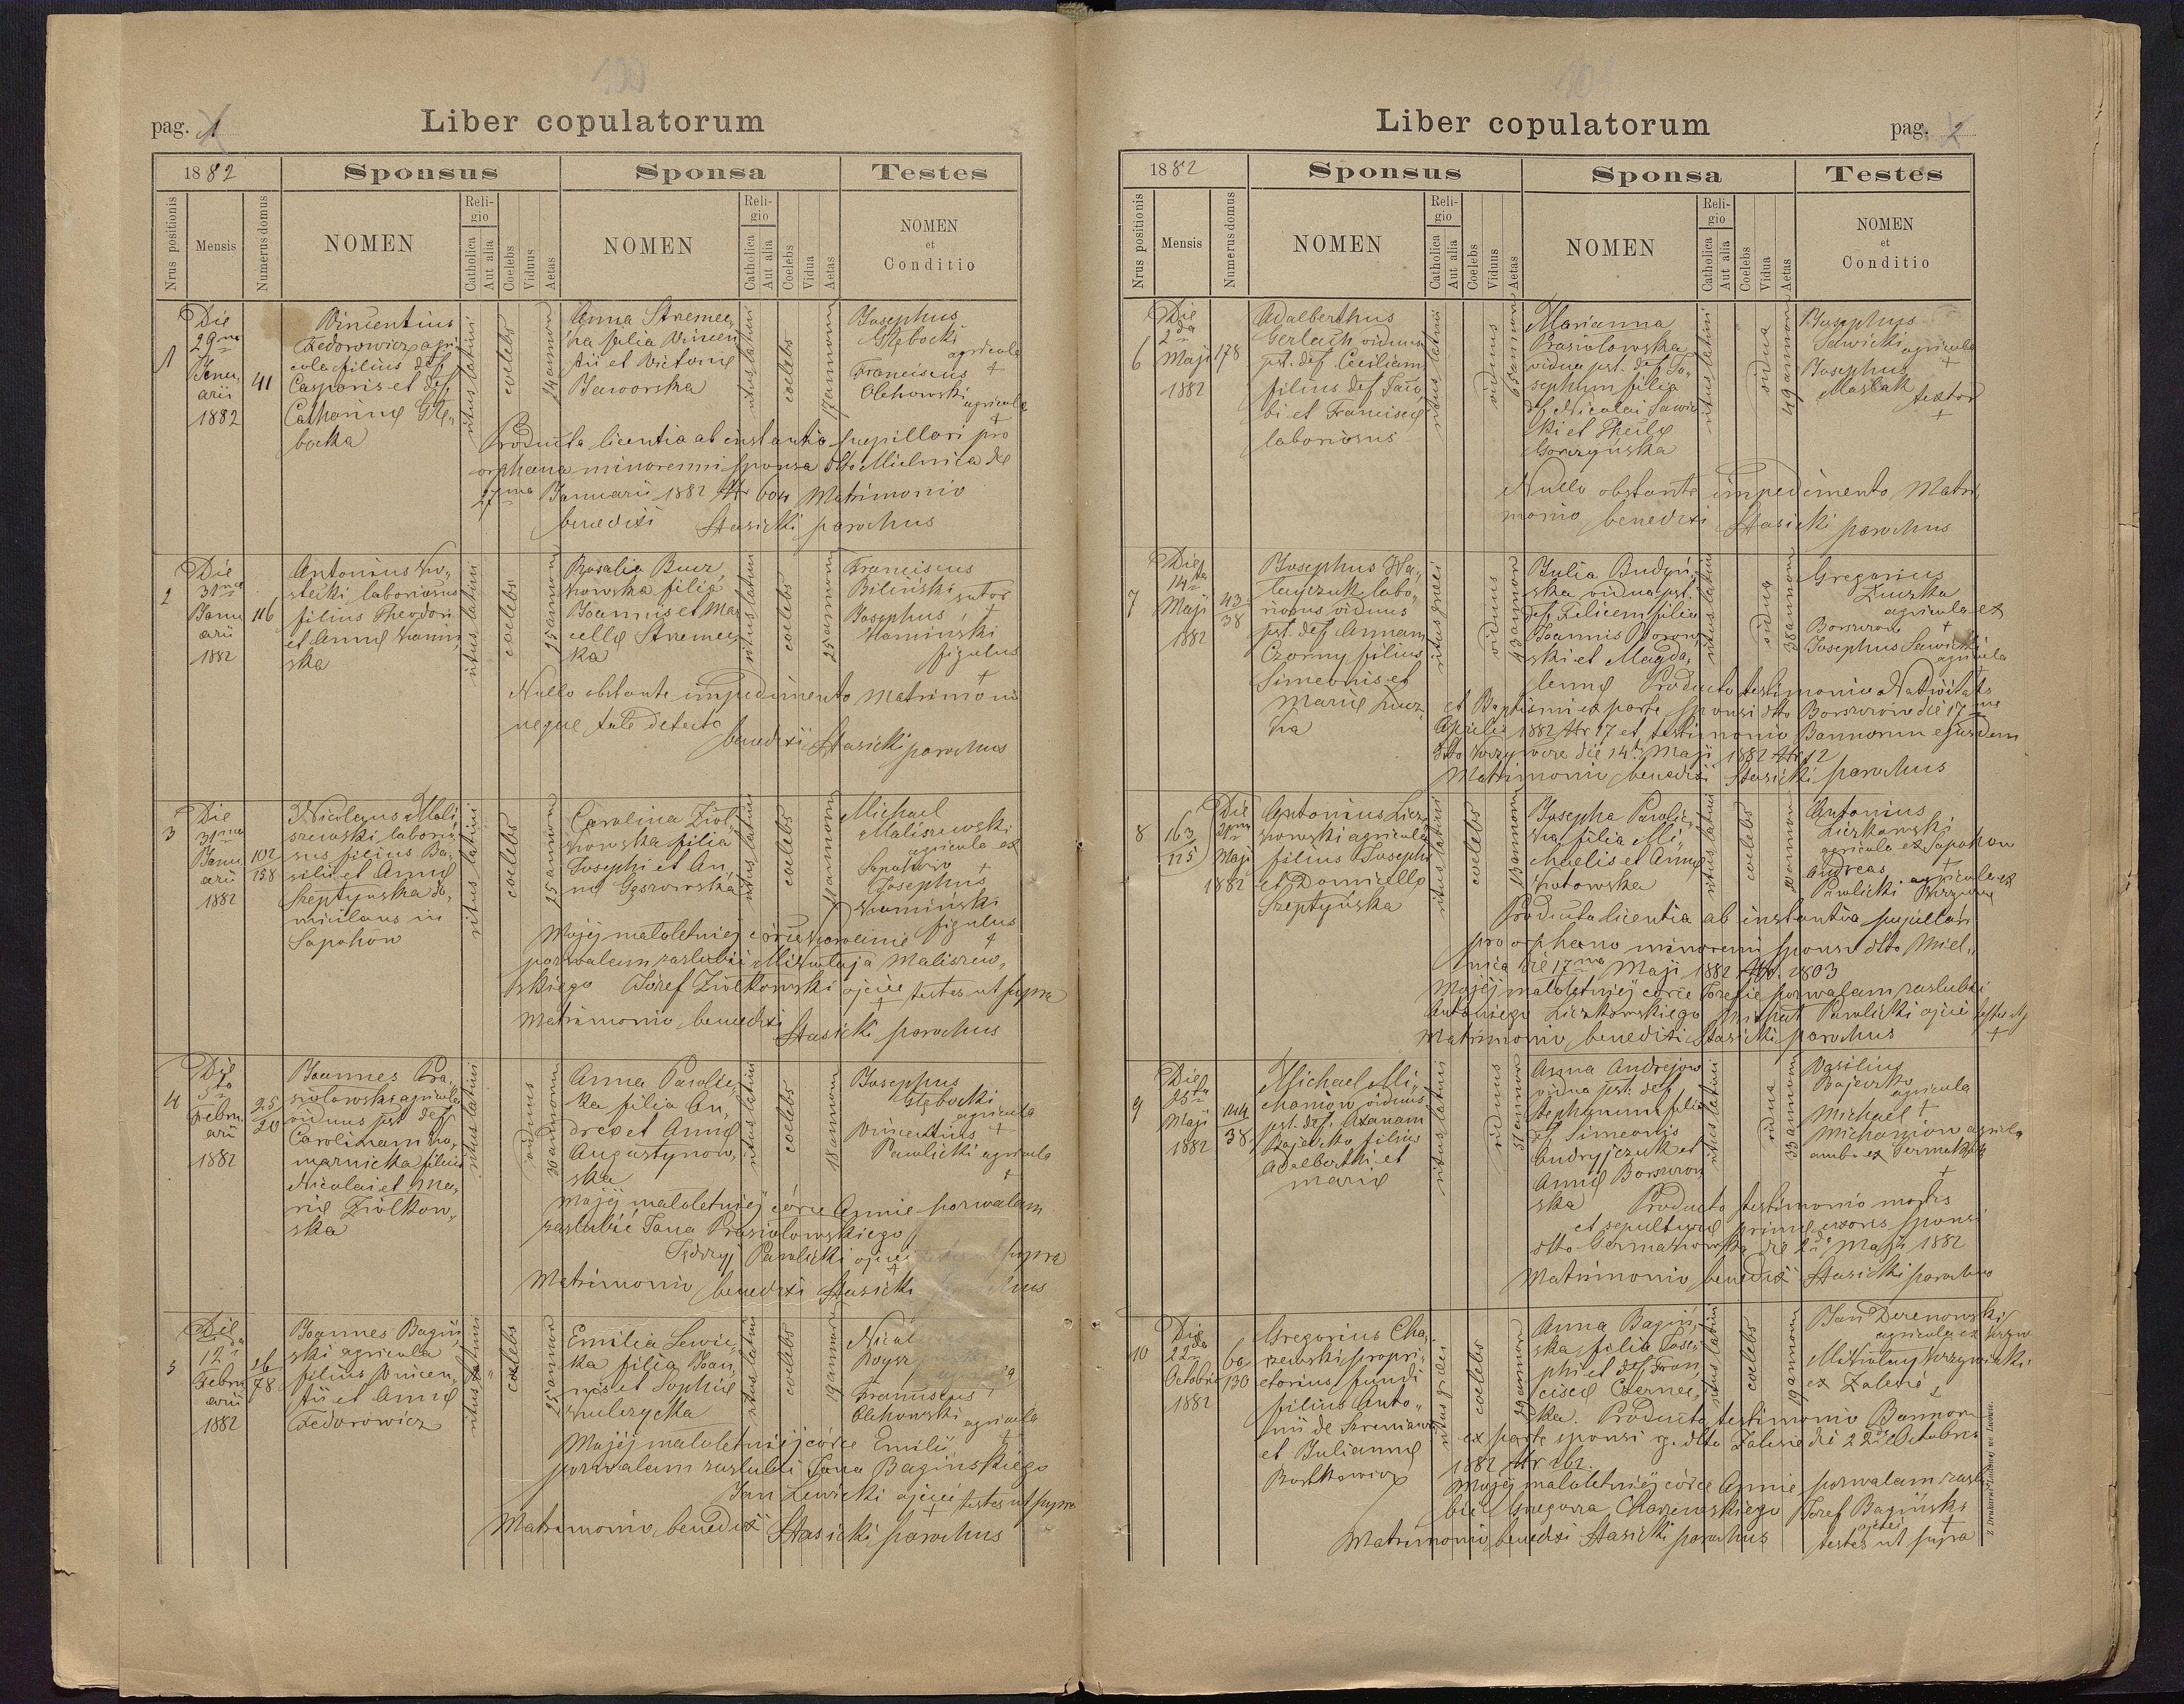 100
pag. 1
Liber copulatorum
1882
Sponsus
Sponsa
Testes
Nrus positionis
Mensis
Numerus domus
NOMEN
Reli-
gio
Catholica
Aut alia
Coelebs
Viduus
Aetas
NOMEN
Reli-
gio
Catholica
Aut alia
Coelebs
Vidua
Aetas
NOMEN
et
Conditio
1
Die
29na
Janu,
arii
1882
41
Vincentius
Fedorowicz agri
cola filius def
Casparis et def
Catharinę Głę,
bocka
ritus latini
coelebs
24 annor
Anna Stremec,
ka filia Vincen
tii et Victorię
Jaworska
ritus latini
coelebs
17 annorum
Josephus
Głębocki
agricola
Franciscus +
Olchowski
agricola
+
Producta licentia ab instantia pupillari pro
orphana minorenni sponsa dtto Mielnica de
27ma Januarii 1882 Nr 604 Matrimonio
benedixi Stasicki parochus
2
Die
31ma
Janu
arii
1882
116
Antonius Ko,
stecki laboriosus
filius Theodori
et Annę Kamin,
ska
ritus latini
coelebs
25 annorum
Rosalia Bucz,
kowska filia
Joannis et Mar
cellę Stremec,
ka
ritus latini
coelebs
25 annorum
Franciscus
Biliński sutor
Josephus +
Kamiński
figulus
+
Nullo obstante impedimento Matrimonii
neque tale detecto
benedixi Stasicki parochus
3
Die
31ma
Janu
arii
1882
102
158
Nicolaus Mali
szewski laborio
sus filius Ba,
silii et Annę
Szeptyńska do,
micilans in
Sapohów
ritus latini
coelebs
25 annorum
Carolina Ziół
kowska filia
Josephi et An,
nę Gęszowska
ritus latini
coelebs
Michael
Maliszewski
agricola ex
Sapohów +
Josephus
Kamiński
figulus
+
Mojej małoletniej córce Karolinie
pozwalam zaslubić Mikołaja Maliszew,
skiego Józef Ziółkowski ojciec testes ut supra
+
Matrimonio benedixi
Stasicki parochus
4
Die
5ta
Febru
arii
1882
25
20
Joannes Pra,
siolowski agricola
viduus pst def
Carolinam Ko,
marnicka filius
Nicolai et Ma,
rię Ziółkow,
ska
ritus latini
viduus
30 annorum
Anna Pawlic,
ka filia An,
dreę et Annę
Augustynow,
ska
ritus latini
coelebs
18 annorum
Josephus
Głębocki
agricola
Vincentius +
Pawlicki agricola
+
Mojej małoletniej córce Annie pozwalam
zaslubić Jana Prasiolowskiego
Jędrzej Pawlicki ojciec supra
+
Matrimonio benedixi Stasicki
5
Die
12a
Febru
arii
1882
26
78
Joannes Bagiń
ski agricola
filius Vincen,
tii et Annę
Fedorowicz
ritus latini
coelebs
25 annor
Emilia Lewic,
ka filia Joan,
nis et Sophię
Kulczycka
ritus latini
coelebs
19 annorum
Nicol
Franciscus
Olchowski agricola
+
Mojej małoletniej córce Emilii
pozwalam zaslubić Jana Bagińskiego
Jan Lewicki ojciec testes ut supra
+
Matrimonio benedixi Stasicki parochus
Liber copulatorum
pag. 2
1882
Sponsus
Sponsa
Testes
Nrus positionis
Mensis
Numerus domus
NOMEN
Reli-
gio
Catholica
Aut alia
Coelebs
Viduus
Aetas
NOMEN
Reli-
gio
Catholica
Aut alia
Coelebs
Vidua
Aetas
NOMEN
et
Conditio
6
Die
2da
Maji
1882
178
Adalberthus
Gerlach viduus
pst. def Ceciliam
filius def Jaco,
bi et Franciscę
laboriosus
ritus latini
viduus
65 annorum
Marianna
Prasiolowska
vidua pst. def Jo,
sephum filia
def Nicolai Sawic
ki et Theclę
Gorczyńska
ritus latini
vidua
49 annorum
Josephus
Sawicki agricola
+
Josephus
Maslak
textor
+
Nullo obstante impedimento Matri,
monio benedixi Stasicki parochus
7
Die
14ta
Maji
1882
43
38
Josephus Ha,
layczuk labo,
riosus viduus
pst. def Annam
Czorny filius
Simeonis et
Marię Kucz,
ka
ritus greci
viduus
43 annor
Julia Budyń,
ska vidua pst.
def Felicem filia
Joannis Borow
ski et Magda,
lenę
ritus latini
vidua
38 annorum
Gregorius
Zuczka
agricola ex
Borszczow +
Josephus Sawicki
agricola
+
Producto testimonio Nativitatis
et Baptismi ex parte sponsi dtto Borszczów die 17ma
Aprilis 1882 Nr 17 et testimonio Bannorum ejusdem
dtto Krzywcze die 14ta Maji 1882 Nr 12
Matrimonio benedixi Stasicki parochus
8
163
115
Die
21ma
Maji
1882
Antonius Licz
kowski agricola
filius Josephi
et Domicellę
Szeptyńska
ritus latini
coelebs
Josepha Pawlic,
ka filia Mi,
chaelis et Annę
Kotowska
ritus latini
coelebs
Antonius
Liczkowski
agricola ex Sapohow
Andreas +
Pawlicki agricola ex
Krzywcze
Producta licentia ab instantia pupillari
pro orphano minorenni sponso dtto Miel,
nica die 17ma Maji 1882 Nr. 2803
Mojej małoletniej córce Jozefie pozwalam zaslubić
Antoniego Liczkowskiego Michał Pawlicki ojciec testes ut s
+
Matrimonio benedixi Stasicki parochus
9
Die
25ta
Maji
1882
144
38
Michael Mi,
chaniow viduus
pst. def. Axanam
Bojeczko filius
Adalberthi et
Marię
ritus latini
viduus
51 annor
Anna Andrejow
vidua pst. def
Stephanum filia
def Simeonis
Andryjczuk et
Annę Borszczow
ska
ritus latini
vidua
33 annorum
Vasilius
Bojeczko
agricola
Michael +
Michaniow agricola
ambo ex Germakówka
+
Producto testimonio mortis
et sepulturę primę uxoris sponsi
dtto Germakowka die 2da Maji 1882
Matrimonio benedixi Stasicki parochus
10
Die
22da
Octobris
1882
60
130
Gregorius Cha,
rzewski propri,
etorius fundi
filius Anto,
nii de Szreniawa
et Juliannę
Boskowicz
ritus greci
coelebs
29 annor
Anna Bagiń,
ska filia Jose,
phi et def Fran,
ciscę Czernec,
ka.
ritus latini
coelebs
19 annorum
Jan Derenowski
agricola ex Krzyw
Mikołay Krzywicki
ex Zalesie
Producto testimonio Bannor
ex parte sponsi g. dtto Zalesie die 22da Octobris
1882 Nr 162.
Mojej małoletniej córce Annie pozwalam zaslu
bić Gregorza Charzewskiego Jozef Bagiński
ojciec +
Matrimonio benedixi Stasicki parochus testes ut supra
Z Drukarni Ludowej we Lwowie.